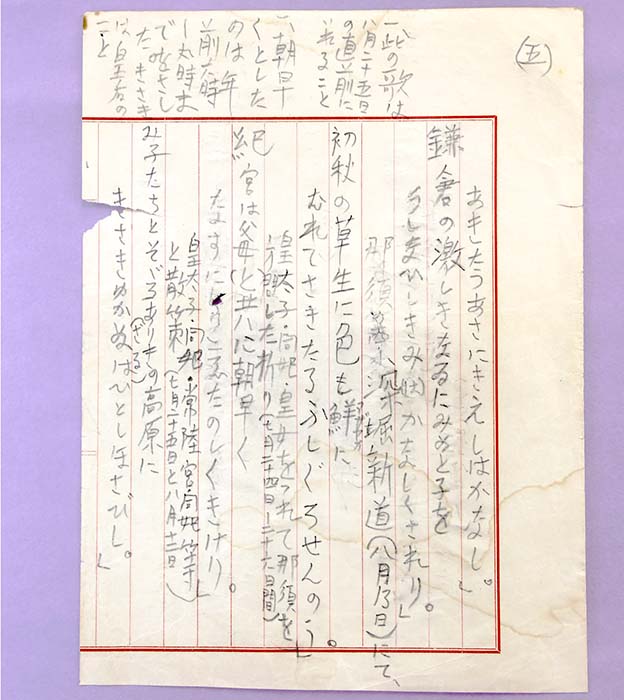 (五)
あきたうあさにきえしはかなし。
鎌倉の激しきなゐにみめと子を
うしなひしきみ かなしくされり。」
那須 深堀新道(八月 日)にて、
初秋の草生に色も鮮に
むれてさきたるふしぐろせんのう。」
皇太子・同妃・皇女をつれて那須を
訪問した折り(七月二十四日―二十六日間)
紀宮は父母と共に朝早く
たのしくきけり。
皇太子・同妃・常陸宮・同妃等
と散策(七月二十五日と八月十二日)」
み子たちとそゞろありきの高原に
きさきのかぬはひとしほさびし。」
一此の歌は
八月二十五日
の道前に
れること
朝早
くとした
のは年
前六時
た きさき
は皇后の
こと